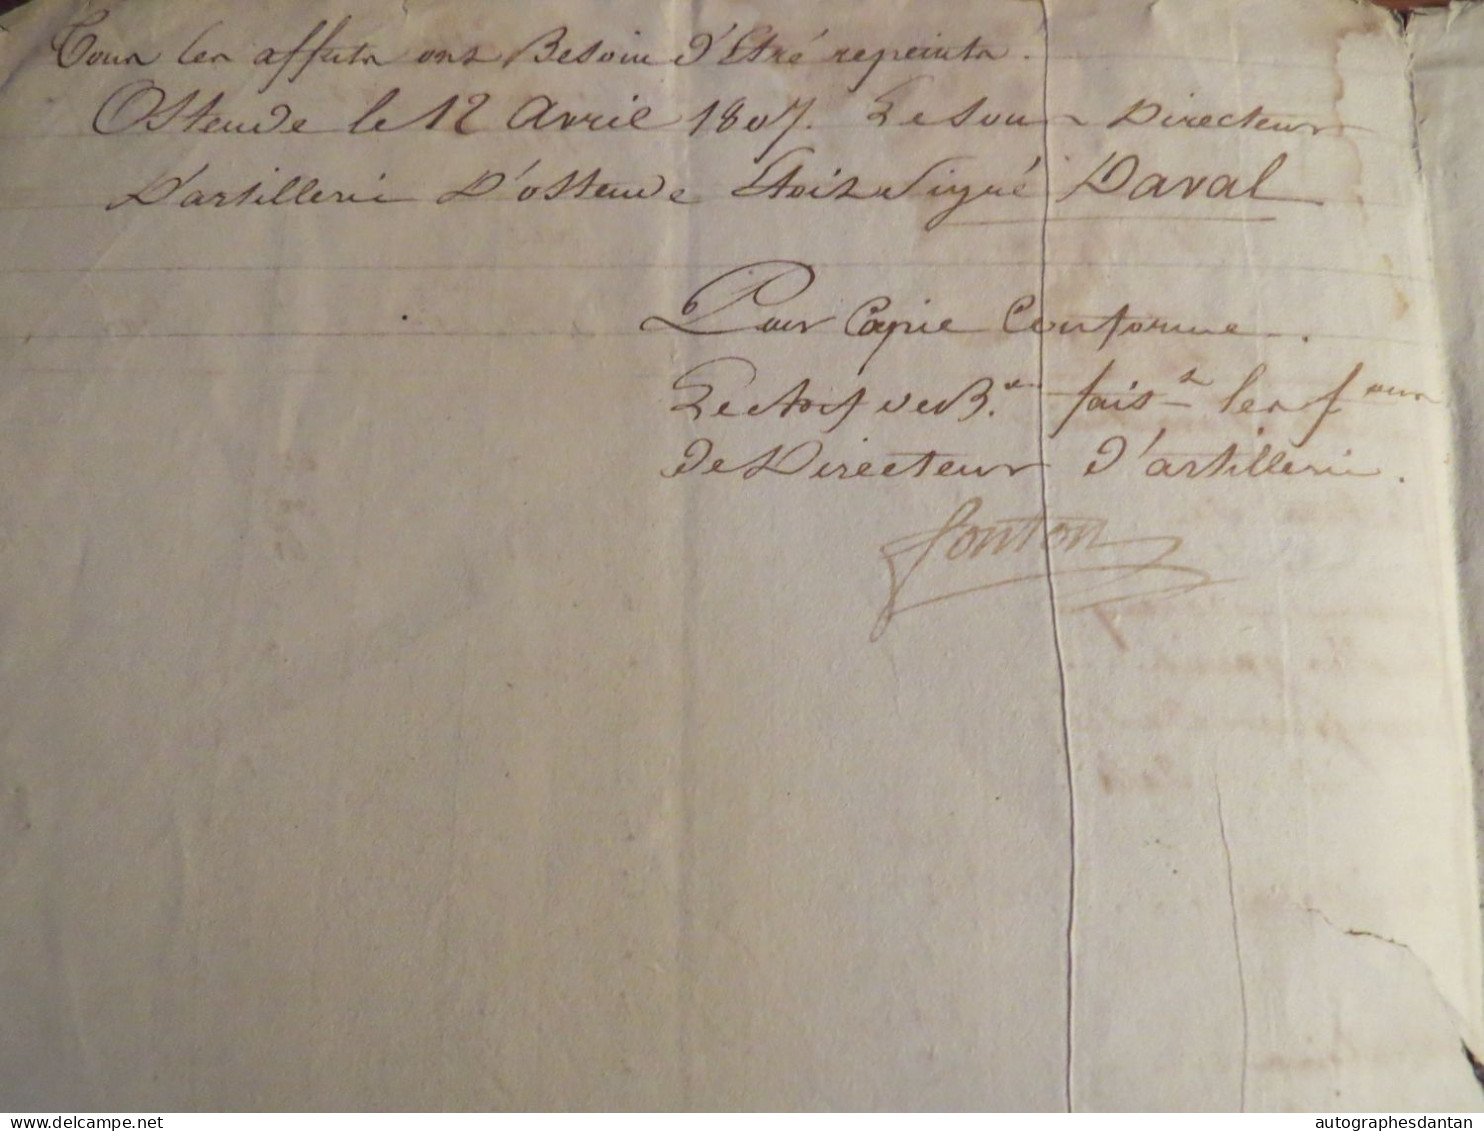 Tous les affuts ont Besoin d'Etré repeints.
Ostende le 12 avril 1807. Le Sous Directeur
D'artillerie D'ostende Etoit Signé Daval
Pour Copie Conforme.
Le chef de B.on fais.t les f.ons
de Directeur d'artillerie.
fonton
autographesdantan